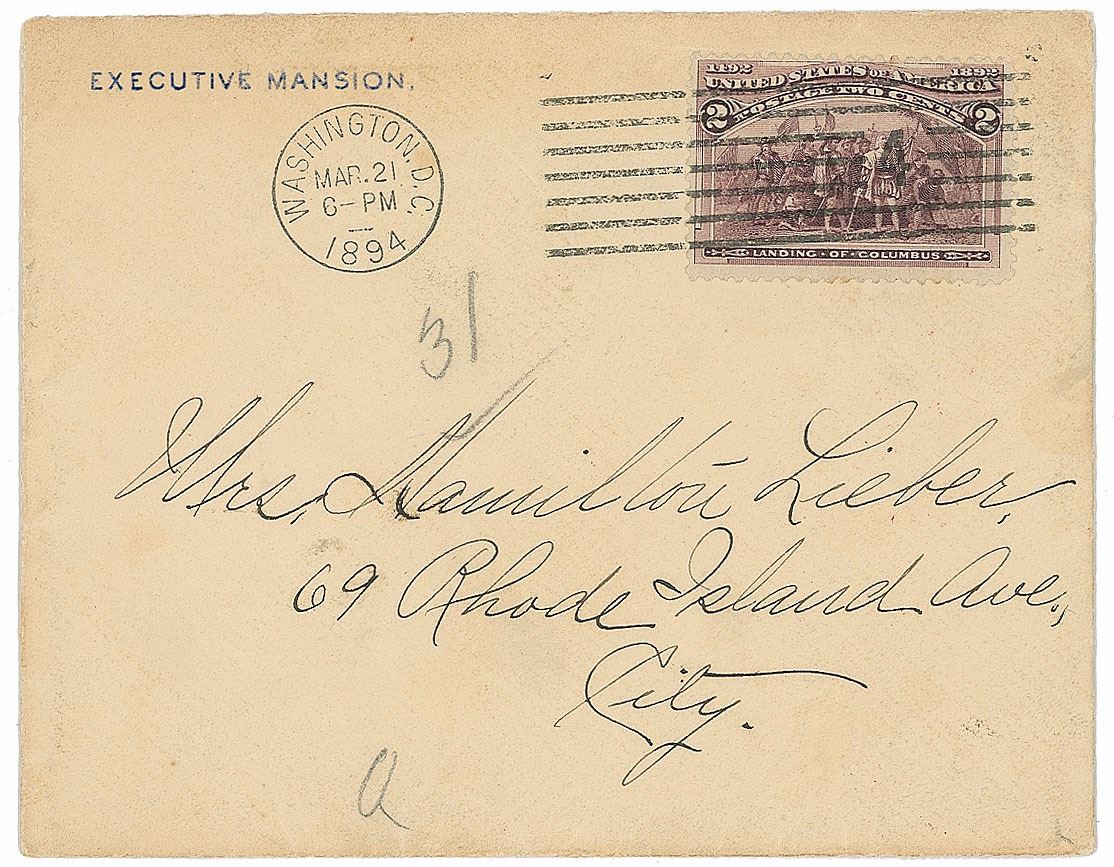 EXECUTIVE MANSION.
WASHINGTON, D.C.
MAR. 21
6-PM
1894
1492 1892
UNITED STATES OF AMERICA
2 POSTAGE TWO CENTS 2
4
LANDING · OF · COLUMBUS
31
Mrs. Hamilton Lieber,
69 Rhode Island Ave.,
City.
a